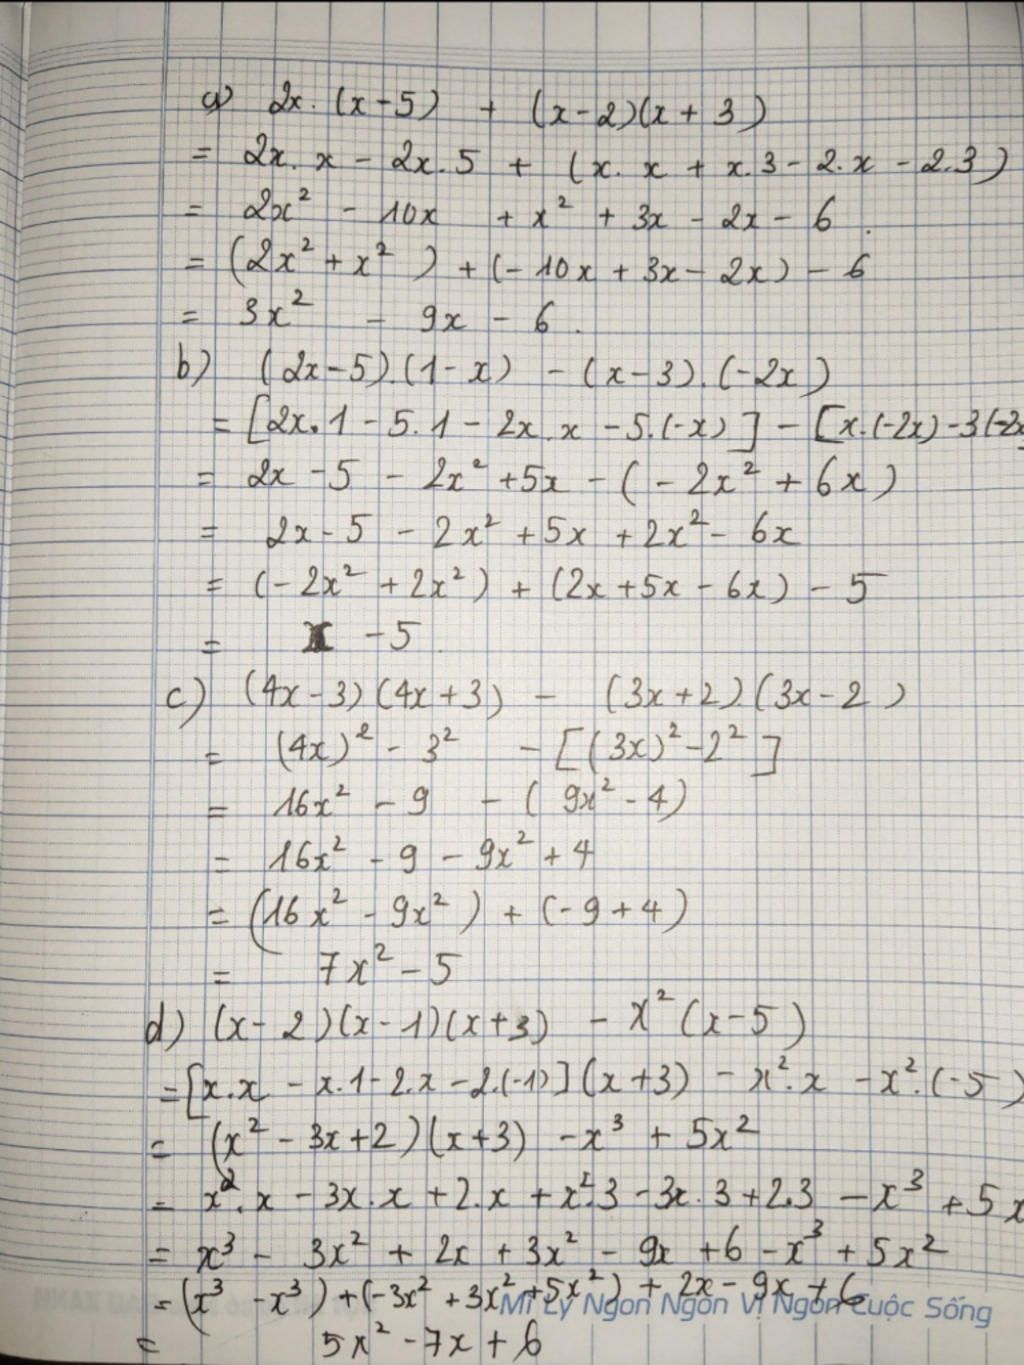 a) 2x. (x-5) + (x-2)(x+3)
= 2x. x - 2x. 5 + (x. x + x. 3 - 2. x - 2.3)
= 2x² - 10x + x² + 3x - 2x - 6.
= (2x² + x²) + (-10x + 3x - 2x) - 6
= 3x² - 9x - 6.
b) (2x-5).(1-x) - (x-3).(-2x)
= [2x.1 - 5.1 - 2x.x - 5.(-x)] - [x.(-2x) - 3(-2x
= 2x - 5 - 2x² + 5x - (-2x² + 6x)
= 2x - 5 - 2x² + 5x + 2x² - 6x
= (-2x² + 2x²) + (2x + 5x - 6x) - 5
= x - 5.
c) (4x-3)(4x+3) - (3x+2).(3x-2)
= (4x)² - 3² - [(3x)² - 2²]
= 16x² - 9 - (9x² - 4)
= 16x² - 9 - 9x² + 4
= (16x² - 9x²) + (-9+4)
= 7x² - 5
d) (x-2)(x-1)(x+3) - x²(x-5)
= [x.x - x.1 - 2.x - 2.(-1)](x+3) - x².x - x².(-5)
= (x² - 3x + 2)(x+3) - x³ + 5x²
= x².x - 3x.x + 2.x + x².3 - 3x.3 + 2.3 - x³ + 5x
= x³ - 3x² + 2x + 3x² - 9x + 6 - x³ + 5x²
= (x³ - x³) + (-3x² + 3x² + 5x²) + 2x - 9x + 6
Mì Ly Ngon Ngon Vị Ngon Cuộc Sống
= 5x² - 7x + 6